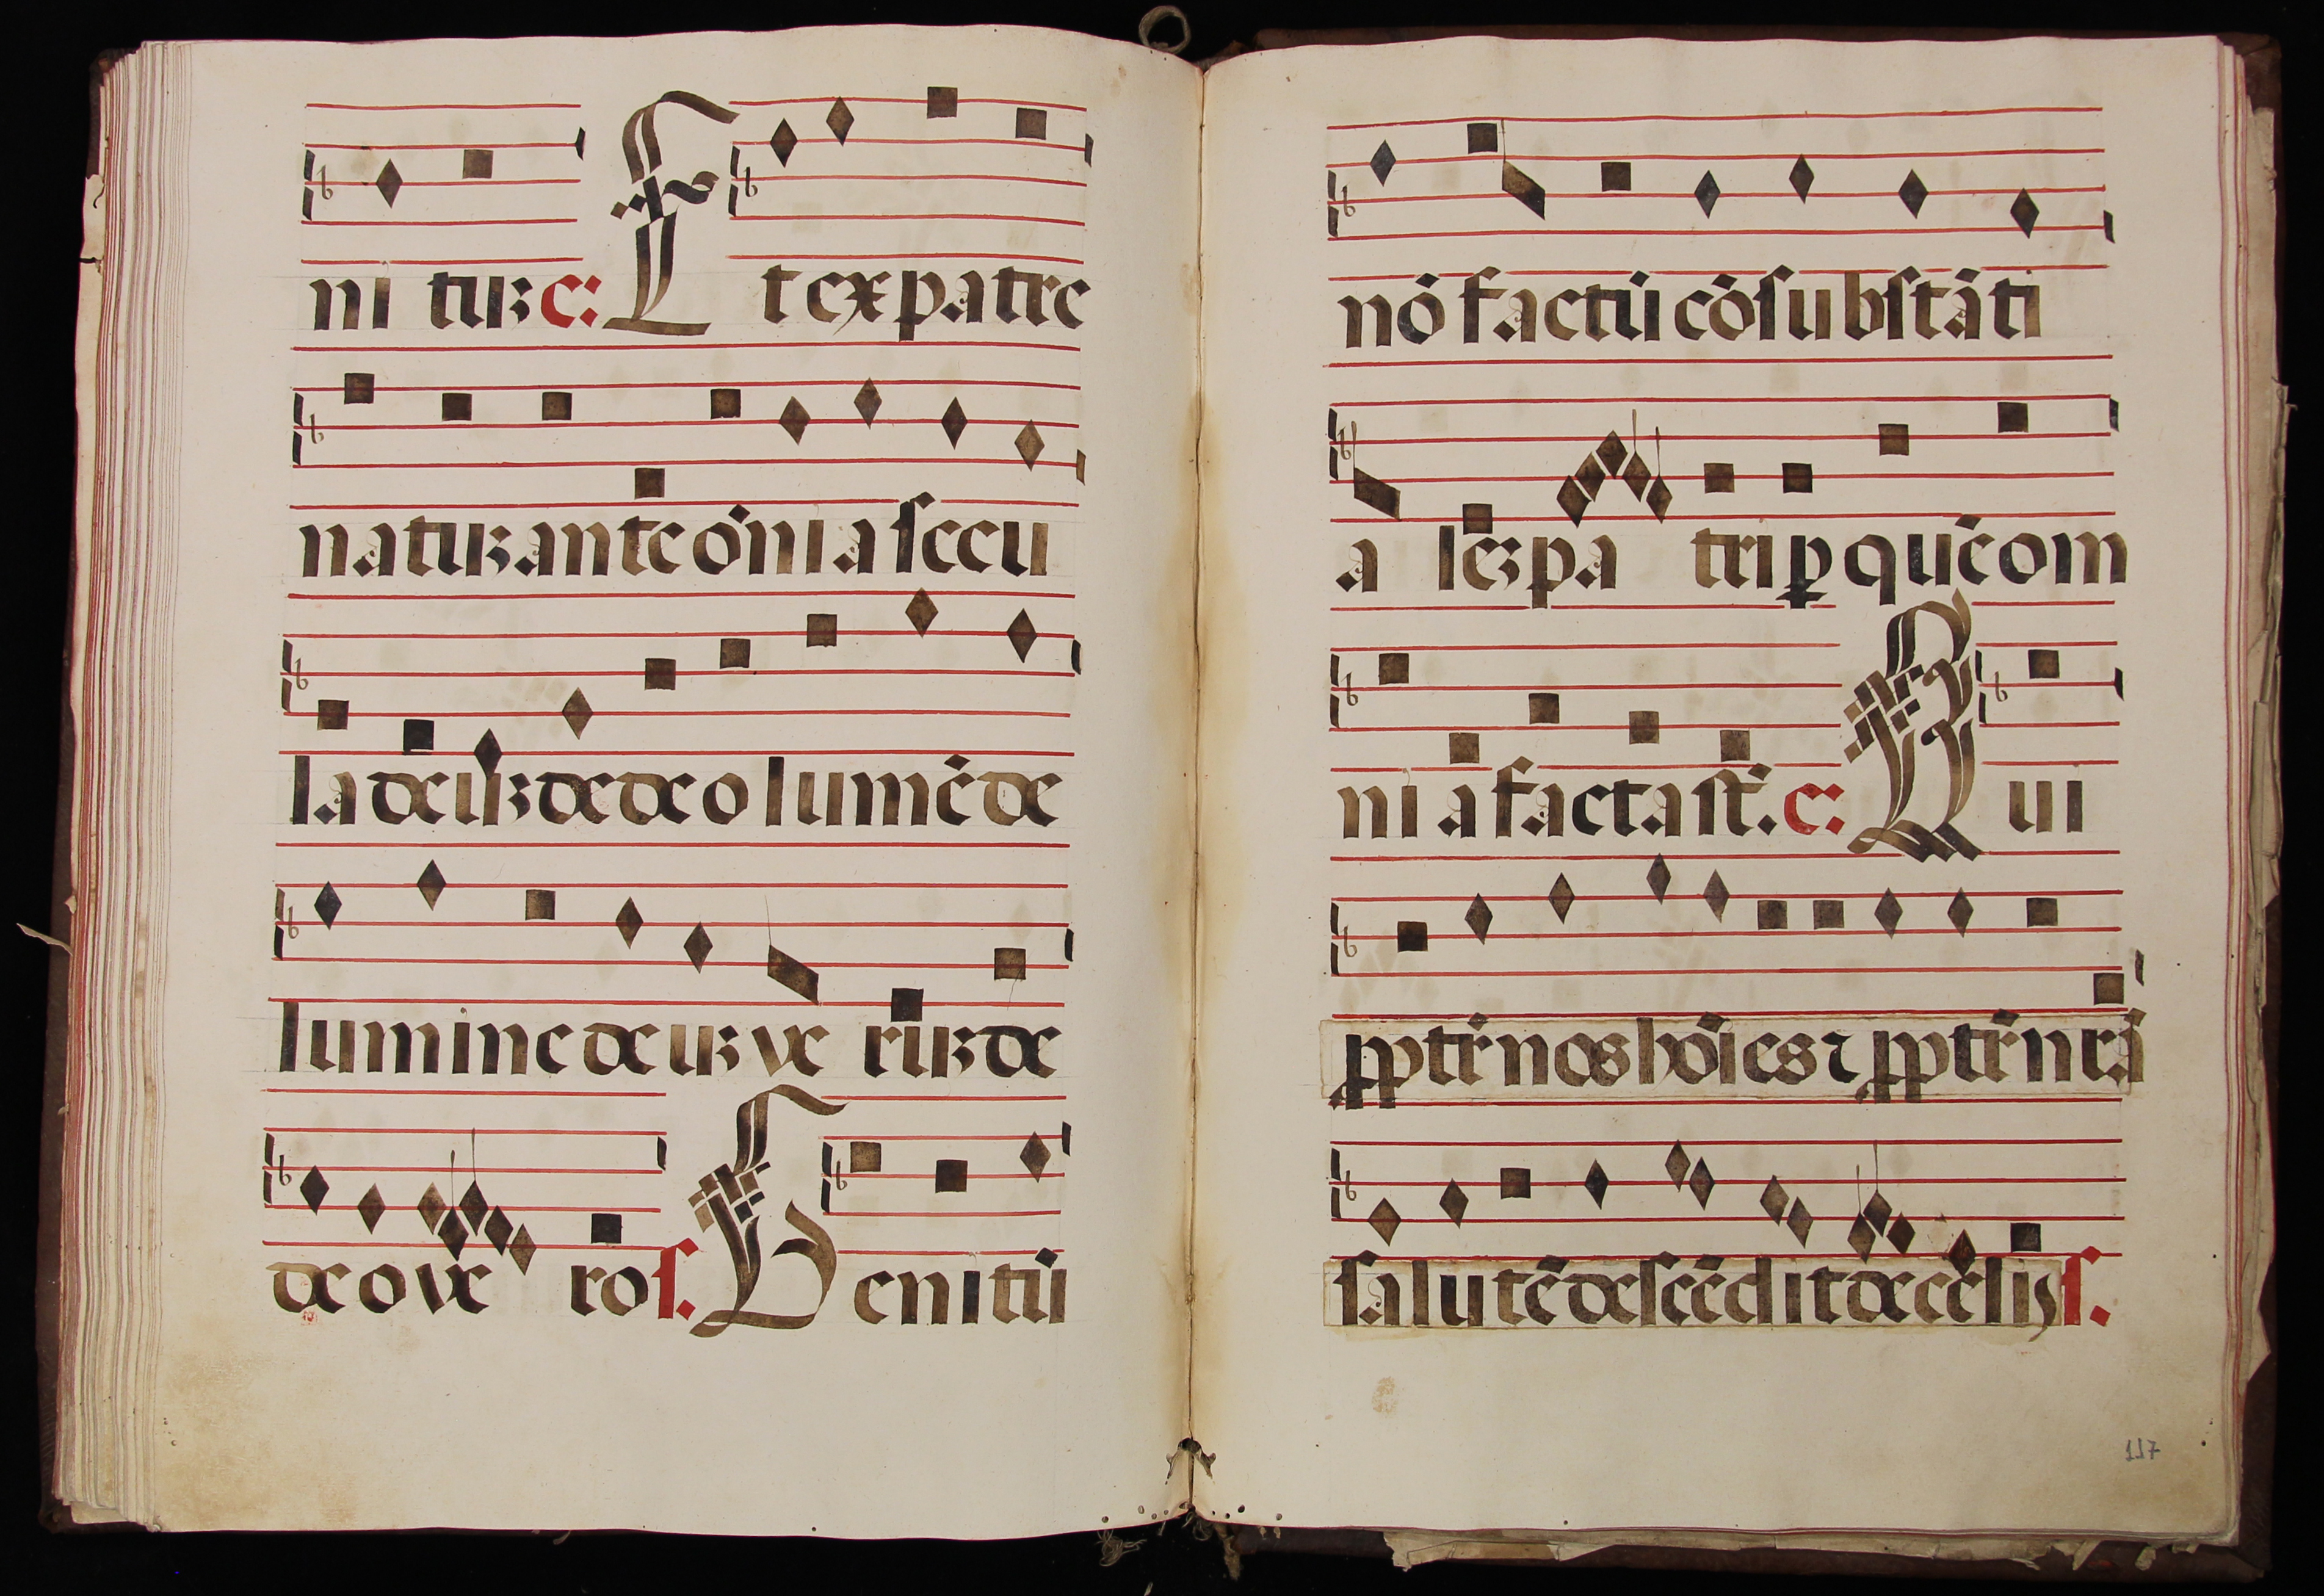 ni tuꝫ c: Et ex patre
natuꝫ ante oĩa secu
la deuꝫ de deo lumẽ de
lumine deuꝫ ve ruꝫ de
deo ve ro s. Genitũ
nõ factũ cõsubstãti
a leꝫ pa tri ꝑ quẽ om
ni a facta st̃. c: Qui
ꝓpter̃ nos hõies ⁊ ꝓpter̃ nr̃ã
salutẽ descẽdit de celis s.
117